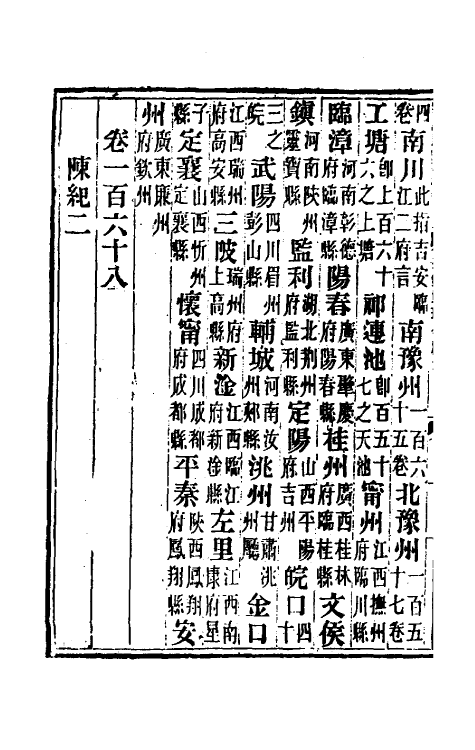 四卷南川此指吉安臨江二府言南豫州一百六十五卷北豫州一百五十七卷
工塘卽上百六十六之上塘祁連池卽百五十七之天池甯州江西撫州府臨川縣
臨漳河南彰德府臨漳縣陽春廣東肇慶府陽春縣桂州廣西桂林府臨桂縣文侯
鎮河南陝州靈寶縣監利湖北荆州府監利縣定陽山西平陽府吉州皖口四十
三之皖武陽四川眉州彭山縣輔城河南汝州郟縣洮州甘肅洮州廳金口
江西瑞州府高安縣三陂瑞州府上高縣新淦江西臨江府新淦縣左里江西南康府星
子縣定襄山西忻州定襄縣懷甯四川成都府成都縣平秦陝西鳳翔府鳳翔縣安
州廣東廉州府欽州
卷一百六十八
陳紀二